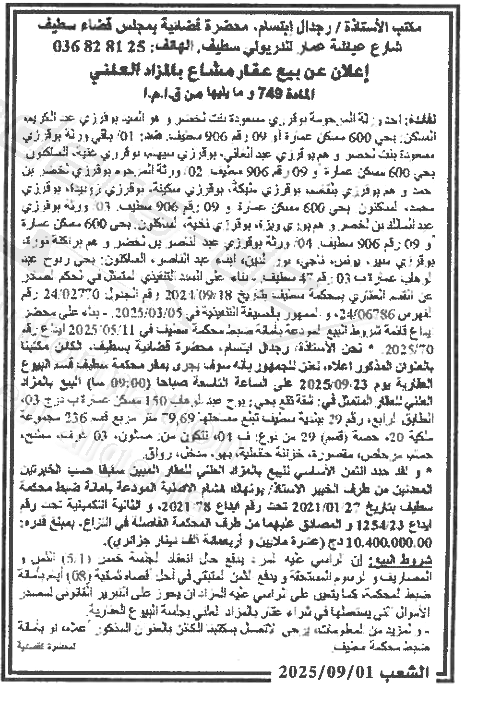 مكتب الأستاذة / رجدال إبتسام، محضرة قضائية بمجلس قضاء سطيف
شارع عياشة عمار لندريولي سطيف. الهاتف: 25 81 82 036
إعلان عن بيع عقار مشاع بالمزاد العلني
المادة 749 و ما يليها من ق.إ.م.إ
لفائدة: أحد ورثة المرحومة بوقرزي مسعودة بنت لخضر و هو السيد بوقرزي عبد الكريم،
السكن: بحي 600 مسكن عمارة أو 09 رقم 906 سطيف. ضد: 01/ باقي ورثة بوقرزي
مسعودة بنت لخضر و هم بوقرزي عبد الغاني، بوقرزي سيهم، بوقرزي عقبة، الساكنون
بحي 600 مسكن عمارة و 09 رقم 906 سطيف. 02/ ورثة المرحوم بوقرزي لخضر بن
حمد و هم بوقرزي بلقاسم، بوقرزي مليكة، بوقرزي سكينة، بوقرزي زوبيدة، بوقرزي
محمد، الساكنون بحي 600 مسكن عمارة و 09 رقم 906 سطيف. 03/ ورثة بوقرزي
عبد المالك بن لخضر و هم بوبري ويزة، بوقرزي نجية، الساكنون بحي 600 مسكن عمارة
أو 09 رقم 906 سطيف. 04/ ورثة بوقرزي عبد الناصر بن لخضر و هم براكتة نورة،
بوقرزي سمير، يونس، ناجي، نور الدين، أبناء عبد الناصر، الساكنون: بحي ربوح عبد
الوهاب عمارة ب 03 رقم 47 سطيف. - بناء على السند التنفيذي المتمثل في الحكم الصادر
عن القسم العقاري بمحكمة سطيف بتاريخ 2024/09/18 رقم الجدول 24/02770 رقم
الفهرس 24/06786، و الممهور بالصيغة التنفيذية في 2025/03/05. - بناء على محضر
إيداع قائمة شروط البيع المودعة بأمانة ضبط محكمة سطيف في 2025/05/11 إيداع رقم
2025/70. * نحن الأستاذة/ رجدال ابتسام، محضرة قضائية بسطيف، الكائن مكتبنا
بالعنوان المذكور أعلاه، نعلن للجمهور بأنه سوف يجرى بمقر محكمة سطيف قسم البيوع
العقارية يوم 2025/09/23 على الساعة التاسعة صباحا (09:00 سا) البيع بالمزاد
العلني للعقار المتمثل في: شقة تقع بحي ربوح عبد الوهاب 150 مسكن عمارة ب درج 03،
الطابق الرابع، رقم 29 ببلدية سطيف تبلغ مساحتها 79,69 متر مربع قسم 256 مجموعة
ملكية 20، حصة (قسم) 29 من نوع: ف 04، تتكون من: صالون، 03 غرف، مطبخ،
حمام، مرحاض، مقصورة، خزانة حائطية، بهو، مدخل، رواق.
* و لقد حدد الثمن الأساسي للبيع بالمزاد العلني للعقار المبين سابقا حسب الخبرتين
المعدتين من طرف الخبير الأستاذ/ بونهاك هشام الأصلية المودعة بأمانة ضبط محكمة
سطيف بتاريخ 2021/01/27 تحت رقم إيداع 2021/78، و الثانية التكميلية تحت رقم
إيداع 1254/23 و المصادق عليهما من طرف المحكمة الفاصلة في النزاع. بمبلغ قدره:
10.400.000.00 دج (عشرة ملايين و أربعمائة ألف دينار جزائري).
شروط البيع: إن الراسي عليه المزاد يدفع حال انعقاد الجلسة خمس (5/1) الثمن و
المصاريف و الرسوم المستحقة و يدفع الثمن المتبقي في أجل أقصاه ثمانية (08) أيام بأمانة
ضبط المحكمة، كما يتعين على الراسي عليه المزاد أن يحوز على التبرير القانوني لمصدر
الأموال التي يستعملها في شراء عقار بالمزاد العلني بجلسة البيوع العقارية.
- و لمزيد من المعلومات، يرجى الاتصال بمكتبنا الكائن بالعنوان المذكور أعلاه أو بأمانة
ضبط محكمة سطيف.
المحضرة القضائية
الشعب 2025/09/01